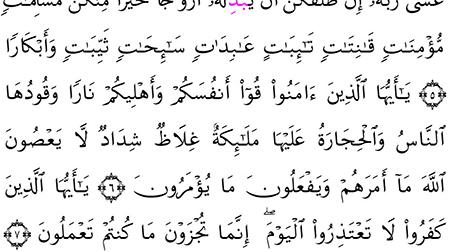 عَسَىٰ رَبُّهُۥٓ إِن طَلَّقَكُنَّ أَن يُبْدِلَهُۥٓ أَزْوَٰجًا خَيْرًا مِّنكُنَّ مُسْلِمَٰتٍ
مُّؤْمِنَٰتٍ قَٰنِتَٰتٍ تَٰٓئِبَٰتٍ عَٰبِدَٰتٍ سَٰٓئِحَٰتٍ ثَيِّبَٰتٍ وَأَبْكَارًا
﴿٥﴾ يَٰٓأَيُّهَا ٱلَّذِينَ ءَامَنُوا۟ قُوٓا۟ أَنفُسَكُمْ وَأَهْلِيكُمْ نَارًا وَقُودُهَا
ٱلنَّاسُ وَٱلْحِجَارَةُ عَلَيْهَا مَلَٰٓئِكَةٌ غِلَاظٌ شِدَادٌ لَّا يَعْصُونَ
ٱللَّهَ مَآ أَمَرَهُمْ وَيَفْعَلُونَ مَا يُؤْمَرُونَ ﴿٦﴾ يَٰٓأَيُّهَا ٱلَّذِينَ
كَفَرُوا۟ لَا تَعْتَذِرُوا۟ ٱلْيَوْمَ ۖ إِنَّمَا تُجْزَوْنَ مَا كُنتُمْ تَعْمَلُونَ ﴿٧﴾